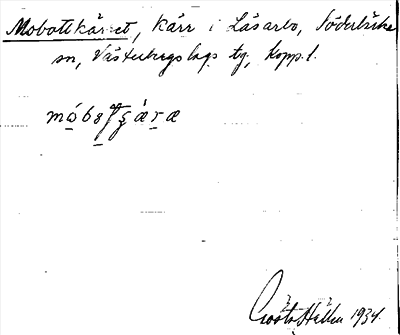 Mobottkärret, kärr i Låsarbo, Söderbärke
sn, Västerbergslags tg, Kopp. l.
Gösta Hallen 1934.